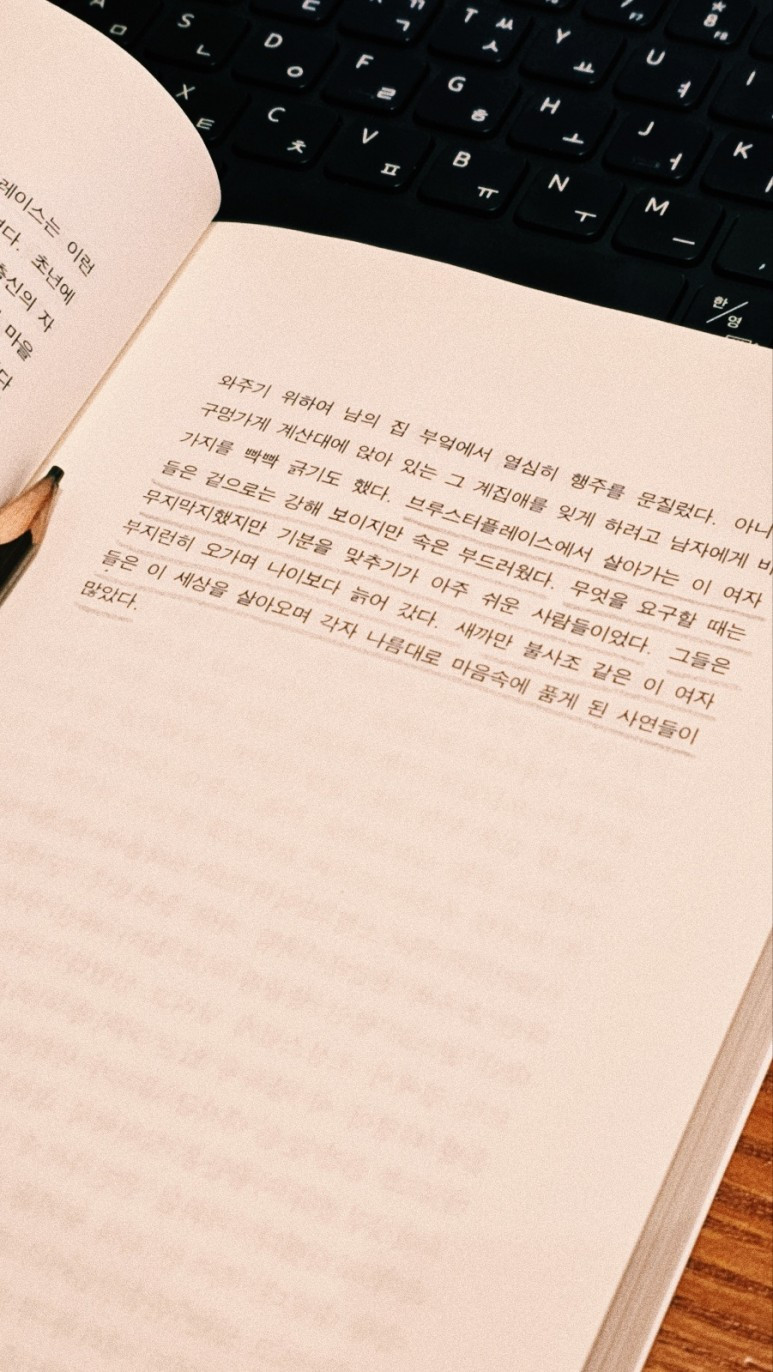 * 8
ㄱ T ㅆ ㅅ Y ㅛ U ㅕ I
A ㅁ S ㄴ D ㅇ F ㄹ G ㅎ H ㅗ J ㅓ K
X ㅌ C ㅊ V ㅍ B ㅠ N ㅜ M ㅡ ,
한/영
레이스는 이런
초년에
출신의 자
마을
와주기 위하여 남의 집 부엌에서 열심히 행주를 문질렀다. 아니
구멍가게 계산대에 앉아 있는 그 계집애를 잊게 하려고 남자에게
가지를 빡빡 긁기도 했다. 브루스터플레이스에서 살아가는 이 여자
들은 겉으로는 강해 보이지만 속은 부드러웠다. 무엇을 요구할 때는
무지막지했지만 기분을 맞추기가 아주 쉬운 사람들이었다. 그들은
부지런히 오가며 나이보다 늙어 갔다. 새까만 불사조 같은 이 여자
들은 이 세상을 살아오며 각자 나름대로 마음속에 품게 된 사연들이
많았다.